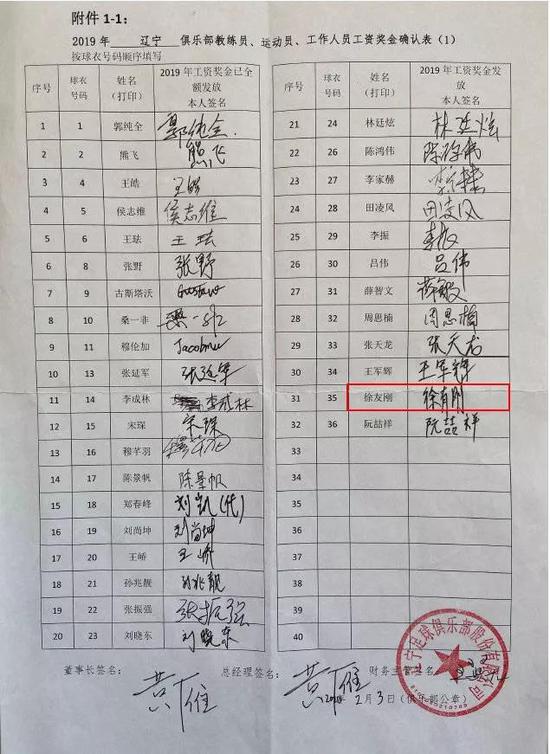 附件 1-1：
2019 年 辽宁 俱乐部教练员、运动员、工作人员工资奖金确认表（1）
按球衣号码顺序填写
序号 球衣号码 姓名（打印） 2019 年工资奖金已全额发放 本人签名
1 1 郭纯全 郭纯全
2 2 熊飞 熊飞
3 4 王皓 王皓
4 5 侯志维 侯志维
5 6 王珐 王珐
6 8 张野 张野
7 9 古斯塔沃 Gustavo
8 10 桑一非 桑一非
9 11 穆伦加 Jacobmu
10 13 张延军 张延军
11 14 李成林 李成林
12 15 宋琛 宋琛
13 16 穆芊羽
14 17 陈景帆 陈景帆
15 18 郑春峰 刘凯（代）
16 19 刘尚坤 刘尚坤
17 20 王峤 王峤
18 21 孙兆靓 孙兆靓
19 22 张振强 张振强
20 23 刘晓东 刘晓东
序号 球衣号码 姓名（打印） 2019 年工资奖金发放 本人签名
21 24 林廷炫 林廷炫
22 26 陈鸿伟 陈鸿伟
23 27 李家赫
24 28 田凌风 田凌风
25 29 李振 李振
26 30 吕伟 吕伟
27 31 薛智文 蒋敏
28 32 周恩楠 周恩楠
29 33 张天龙 张天龙
30 34 王军辉 王军辉
31 35 徐友刚 徐有刚
32 36 阮喆祥 阮喆祥
33
34
35
36
37
38
39
40
董事长签名： 黄雁 总经理签名： 黄雁 财务主管签名：
2月3日（俱乐部公章）
辽宁足球俱乐部股份有限公司